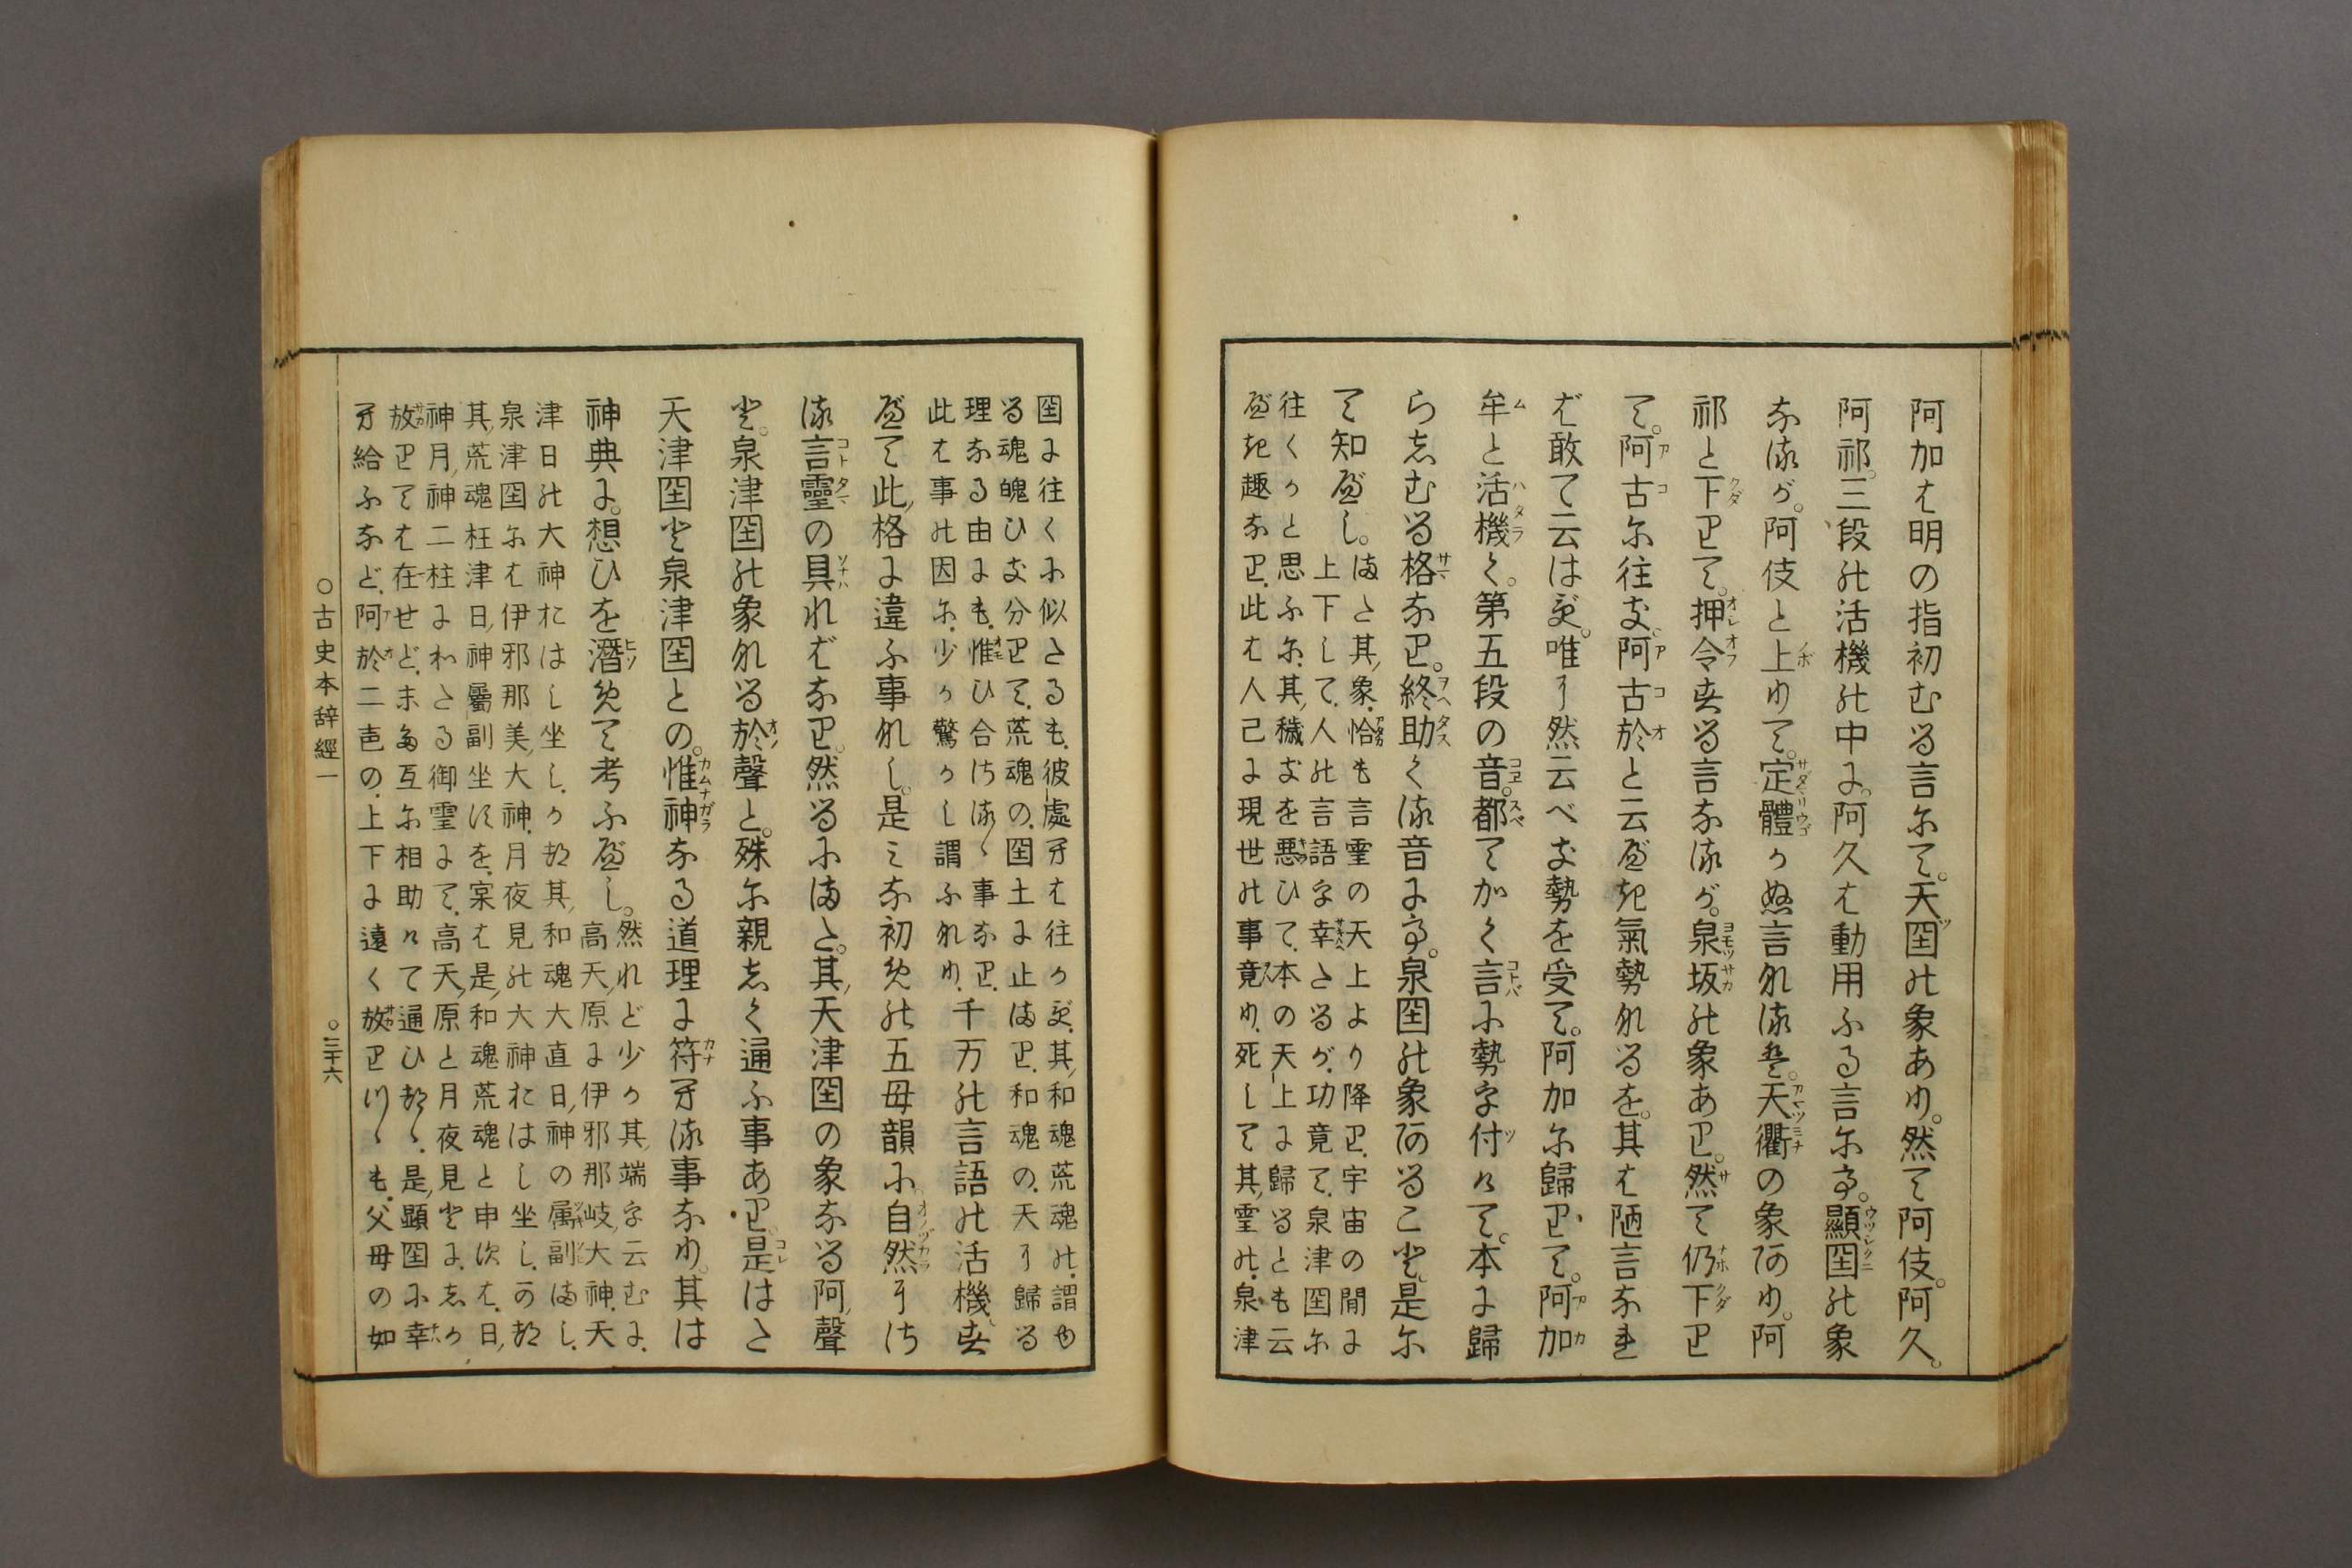 阿加は明の指初むる言にて。天国の象あり。然て阿伎。阿久。
阿祁。三段の活機の中に。阿久は動用ふる言にて。顯国の象
なるが。阿伎と上りて。定體かぬ言なるは。天衢の象あり。阿
祁と下りて。押令する言なるが。泉坂の象あり。然て仍下り
て。阿古に往き。阿古於と云べき氣勢なるを。其は陋言なれ
ば敢て云はず。唯に然云べき勢を受て。阿加に歸りて。阿加
牟と活機く。第五段の音。都てかく言に勢を付けて。本に歸
らしむる格なり。終助くる音にて。泉国の象あること。是に
て知べし。
また其象。恰も言霊の天上より降り。宇宙の間に
上下して。人の言語を幸たるが。功竟て。泉津国に
往くかと思ふに。其穢きを悪ひて。本の天上に歸るとも云
べき趣なり。此は人己に現世の事竟り。死して其霊の。泉津
国に往くに似たるも。彼處までは往かず。其和魂荒魂の。謂ゆ
る魂魄ひき分りて。荒魂の。国土に止まり。和魂の。天に歸る
理なる由にも。惟ひ合さるゝ事なり。
此は事の因に。少か驚かし謂ふなり。千万の言語の活機す
べて此格に違ふ事なし。是みな初めの五母韻に自然にさ
る言靈の具ればなり。然るにまた。其天津国の象なる阿聲
と。泉津国の象なる於聲と。殊に親しく通ふ事あり。是はた
天津国と泉津国との。惟神なる道理に符へる事なり。其は
神典に。想ひを潛めて考ふべし。
然れど少か其端を云むに。
高天原に伊邪那岐大神。天
津日の大神おはし坐し。か故其和魂大直日神の属副まし。
泉津国には伊邪那美大神。月夜見の大神おはし坐し。の故
其荒魂枉津日神屬副坐すを。穴は是和魂荒魂と申すは。日
神月神二柱にわたる御霊にて。高天原と月夜見とに。しか
放りては在せど。まだ互に相助けて通ひ故ゝ。是顯国に幸
へ給ふなど。阿於二音の。上下に遠く放りつゝも。父母の如
○古史本辞經一
○三十六